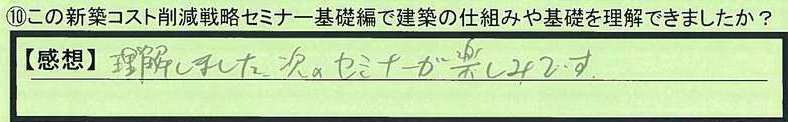 ⑩この新築コスト削減戦略セミナー基礎編で建築の仕組みや基礎を理解できましたか？
【感想】理解しました。次のセミナーが楽しみです。